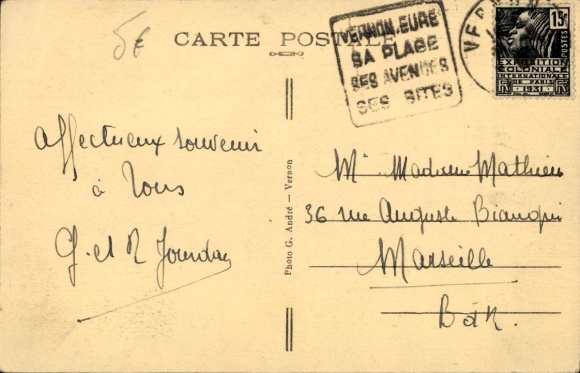 5€
CARTE POSTALE
VERNON.EURE
SA PLAGE
SES AVENUES
SES SITES
VERNON
15c
POSTES
EXPOSITION
COLONIALE
INTERNATIONALE
DE PARIS
1931
Affectueux souvenir
à Tous
G. et R Jourdan
Photo G. André - Vernon
Mr Madame Mathieu
36 rue Auguste Blanqui
Marseille
B d R.